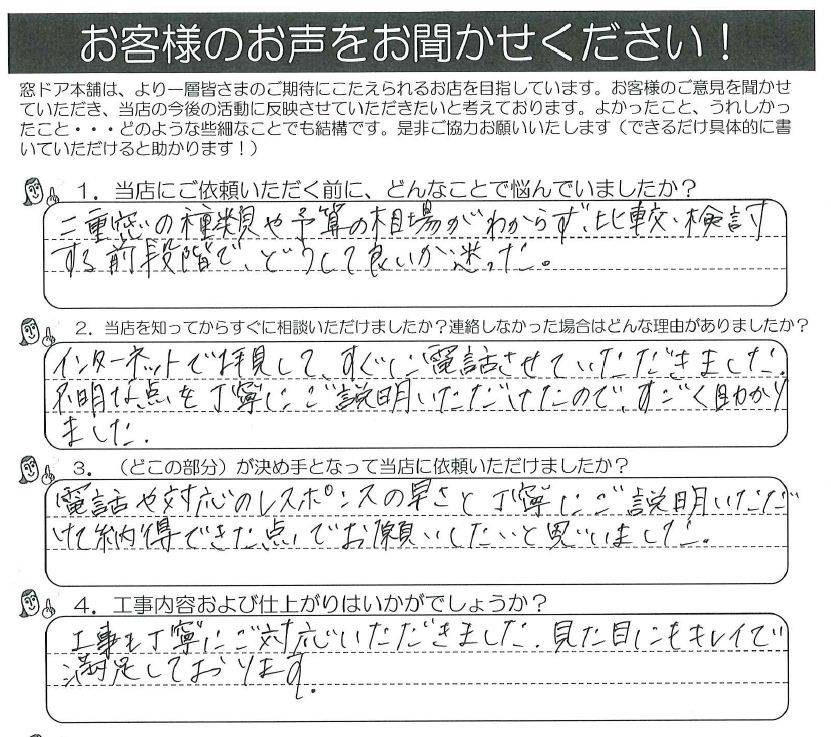 お客様のお声をお聞かせください！
窓ドア本舗は、より一層皆さまのご期待にこたえられるお店を目指しています。お客様のご意見を聞かせ
ていただき、当店の今後の活動に反映させていただきたいと考えております。よかったこと、うれしかっ
たこと・・・どのような些細なことでも結構です。是非ご協力お願いいたします（できるだけ具体的に書
いていただけると助かります！）
1．当店にご依頼いただく前に、どんなことで悩んでいましたか？
二重窓の種類や予算の相場がわからず、比較、検討
する前段階で、どうして良いか迷った。
2．当店を知ってからすぐに相談いただけましたか？連絡しなかった場合はどんな理由がありましたか？
インターネットで拝見して、すぐにご電話させていただきました。
不明な点を丁寧にご説明いただけたので、すごく助かり
ました。
3．（どこの部分）が決め手となって当店に依頼いただけましたか？
電話や対応のレスポンスの早さと丁寧にご説明いただ
けて納得できた点でお願いしたいと思いました。
4．工事内容および仕上がりはいかがでしょうか？
工事も丁寧にご対応いただきました。見た目にもキレイで
満足しております。